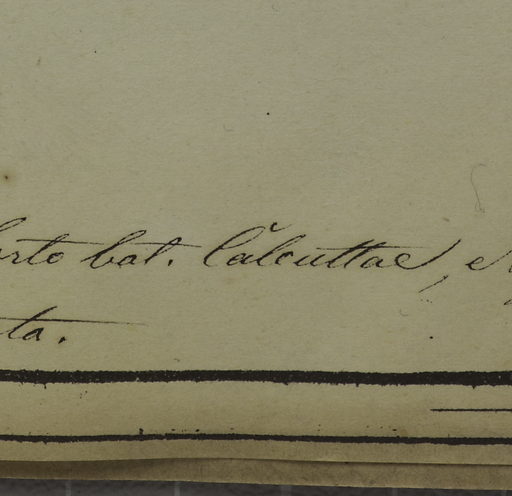 orto bot. Calcuttae, e
ta.